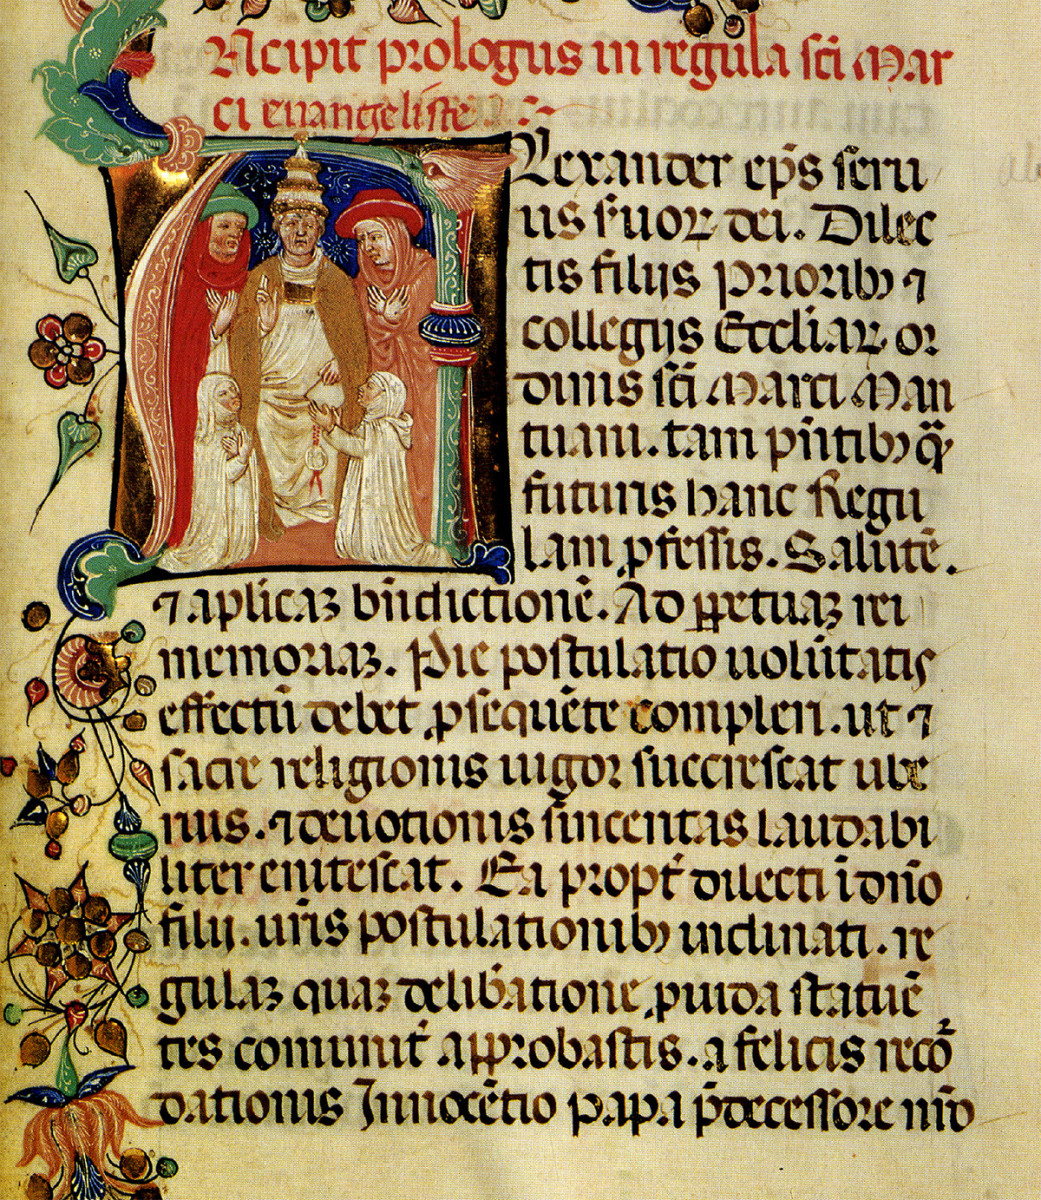 Incipit prologus in regula sci Mar
ci euangeliste
Alexander eps seru
us seruoꝝ dei. Dilec
tis filijs prioribꝫ ⁊
collegijs Eccliaꝝ or
dinis sci Marci Man
tuani. tam pñtibꝫ qꝫ
futuris hanc Regu
lam ꝓfessis. Salutē.
⁊ aplicaꝫ bñdictionē. Ad ꝑpetuaꝫ rei
memoriaꝫ. Pie postulatio volūtatis
effectū debet ꝓsequēte compleri. ut ⁊
sacre religionis uigor succrescat ube
rius. ⁊ deuotionis sinceritas laudabi
liter enitescat. Ea propt̉ dilecti ī dño
filij. ur̄is postulationibꝫ inclinati. re
gulaꝫ quaꝫ delibatione ꝓuida statuē
tes comunit̉ approbastis. a felicis recor̄
dationis Innocētio papa p̄decessore nr̄o